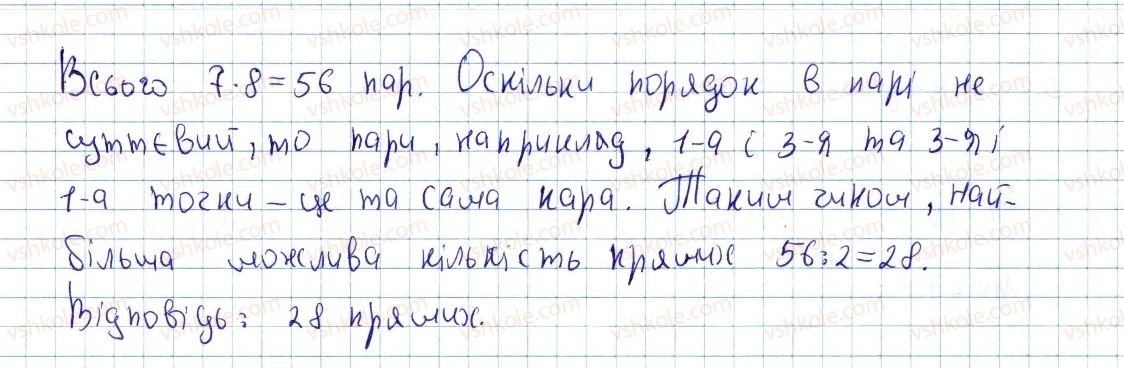 Всього 7·8=56 пар. Оскільки порядок в парі не
суттєвий, то пари, наприклад, 1-а і 3-я та 3-я і
1-а точки – це та сама пара. Таким чином, най-
більша можлива кількість прямих 56:2=28.
Відповідь: 28 прямих.
vshkole.com